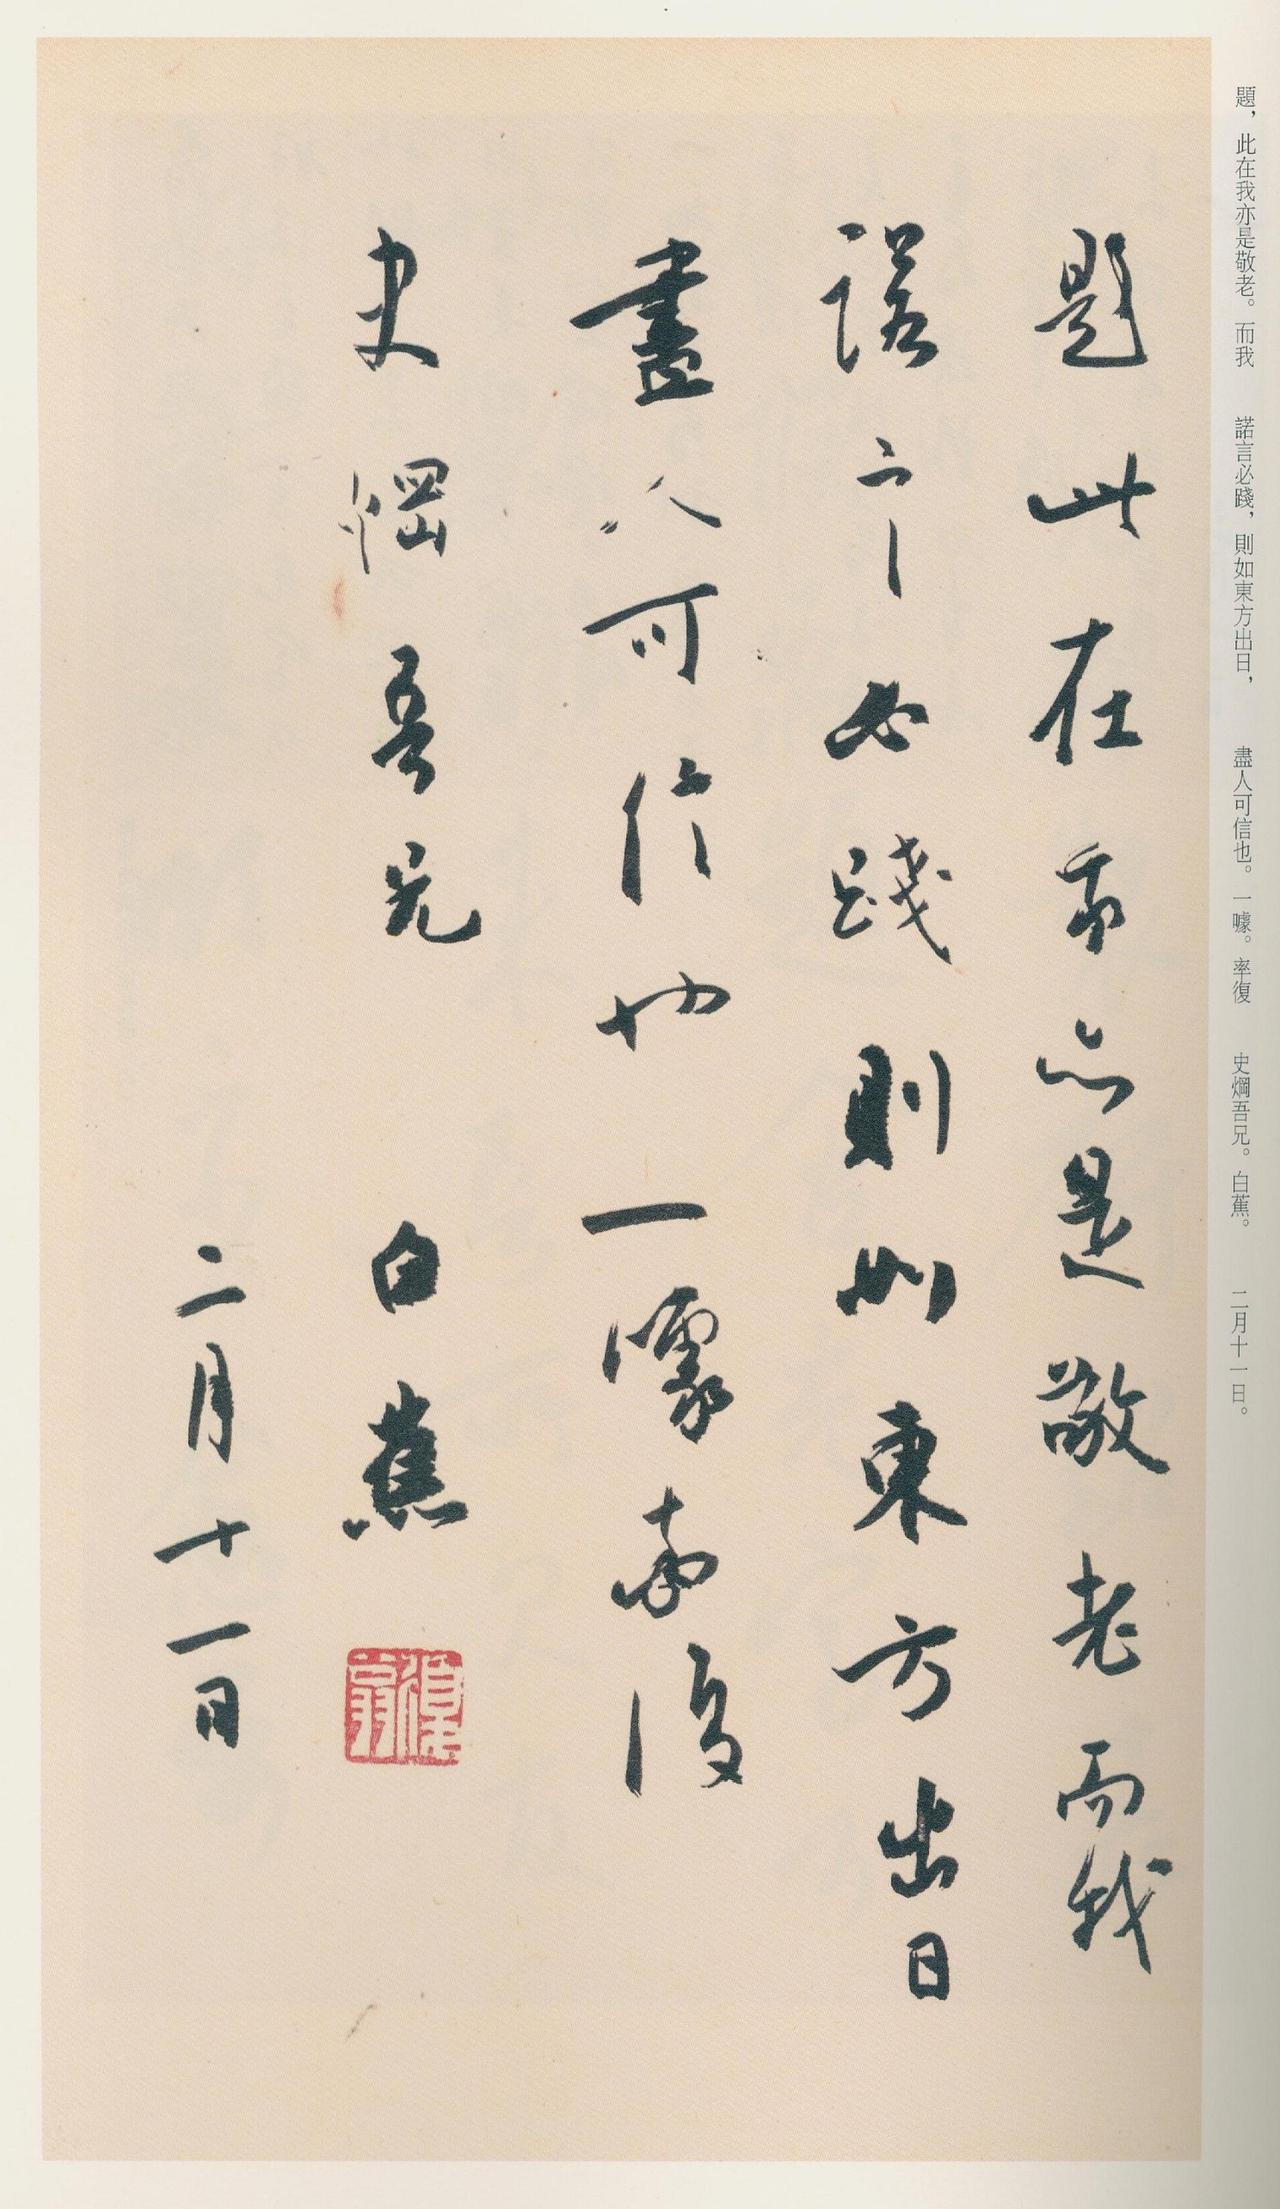 題，此在我亦是敬老。而我　諾言必踐，則如東方出日，　盡人可信也。一噱。率復　史焹吾兄。白蕉。　二月十一日。
題此在我亦是敬老而我
諾言必踐則如東方出日
盡人可信也一噱率復
史焹吾兄　白蕉
二月十一日